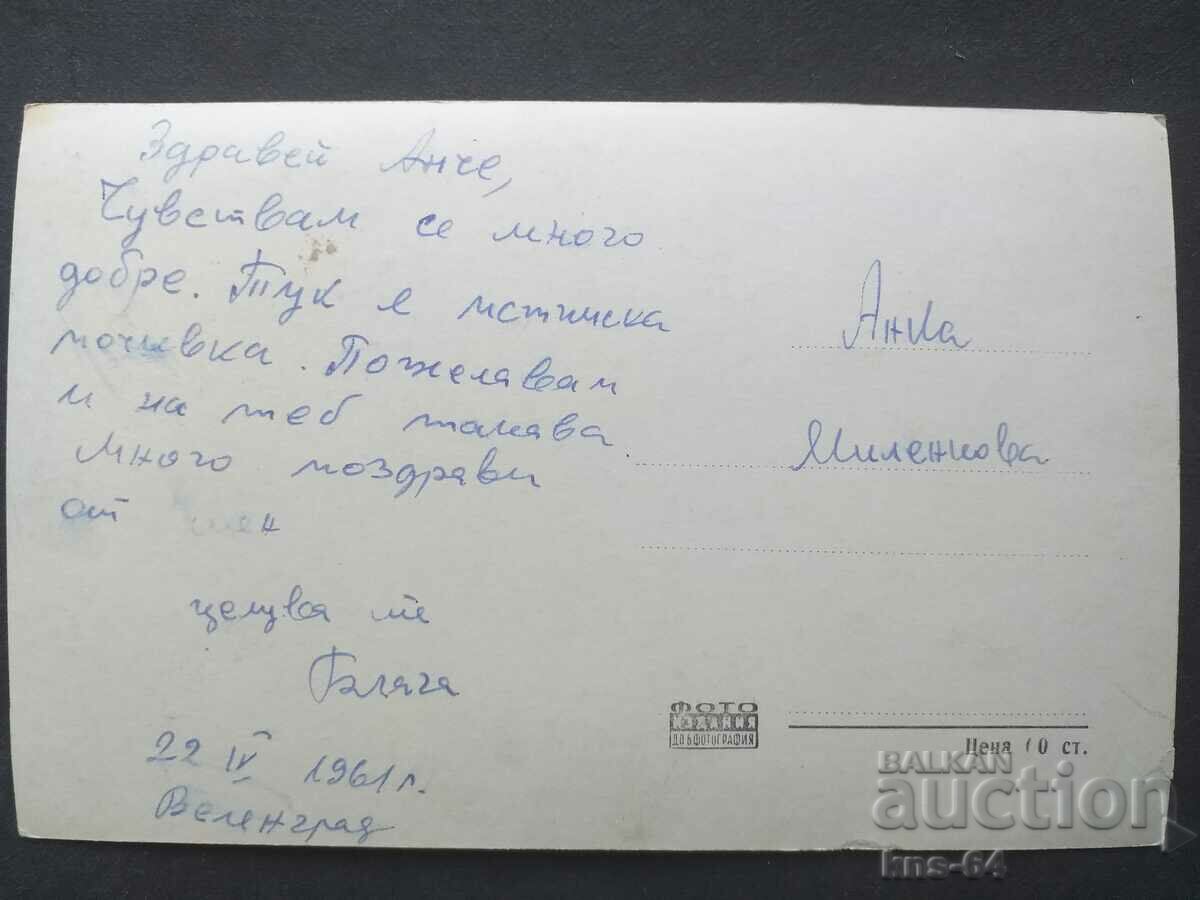 Здравей Анче,
Чувствам се много
добре. Тук е истинска
почивка. Пожелавам
и на теб такава
Много поздрави
от мен
целува те
Блага
22 IV 1961 г.
Веленград
Анка
Миленкова
ФОТО
ИЗДАНИЯ
ДП БЪЛГФОТОГРАФИЯ
Цена 10 ст.
BALKAN
auction
kns-64